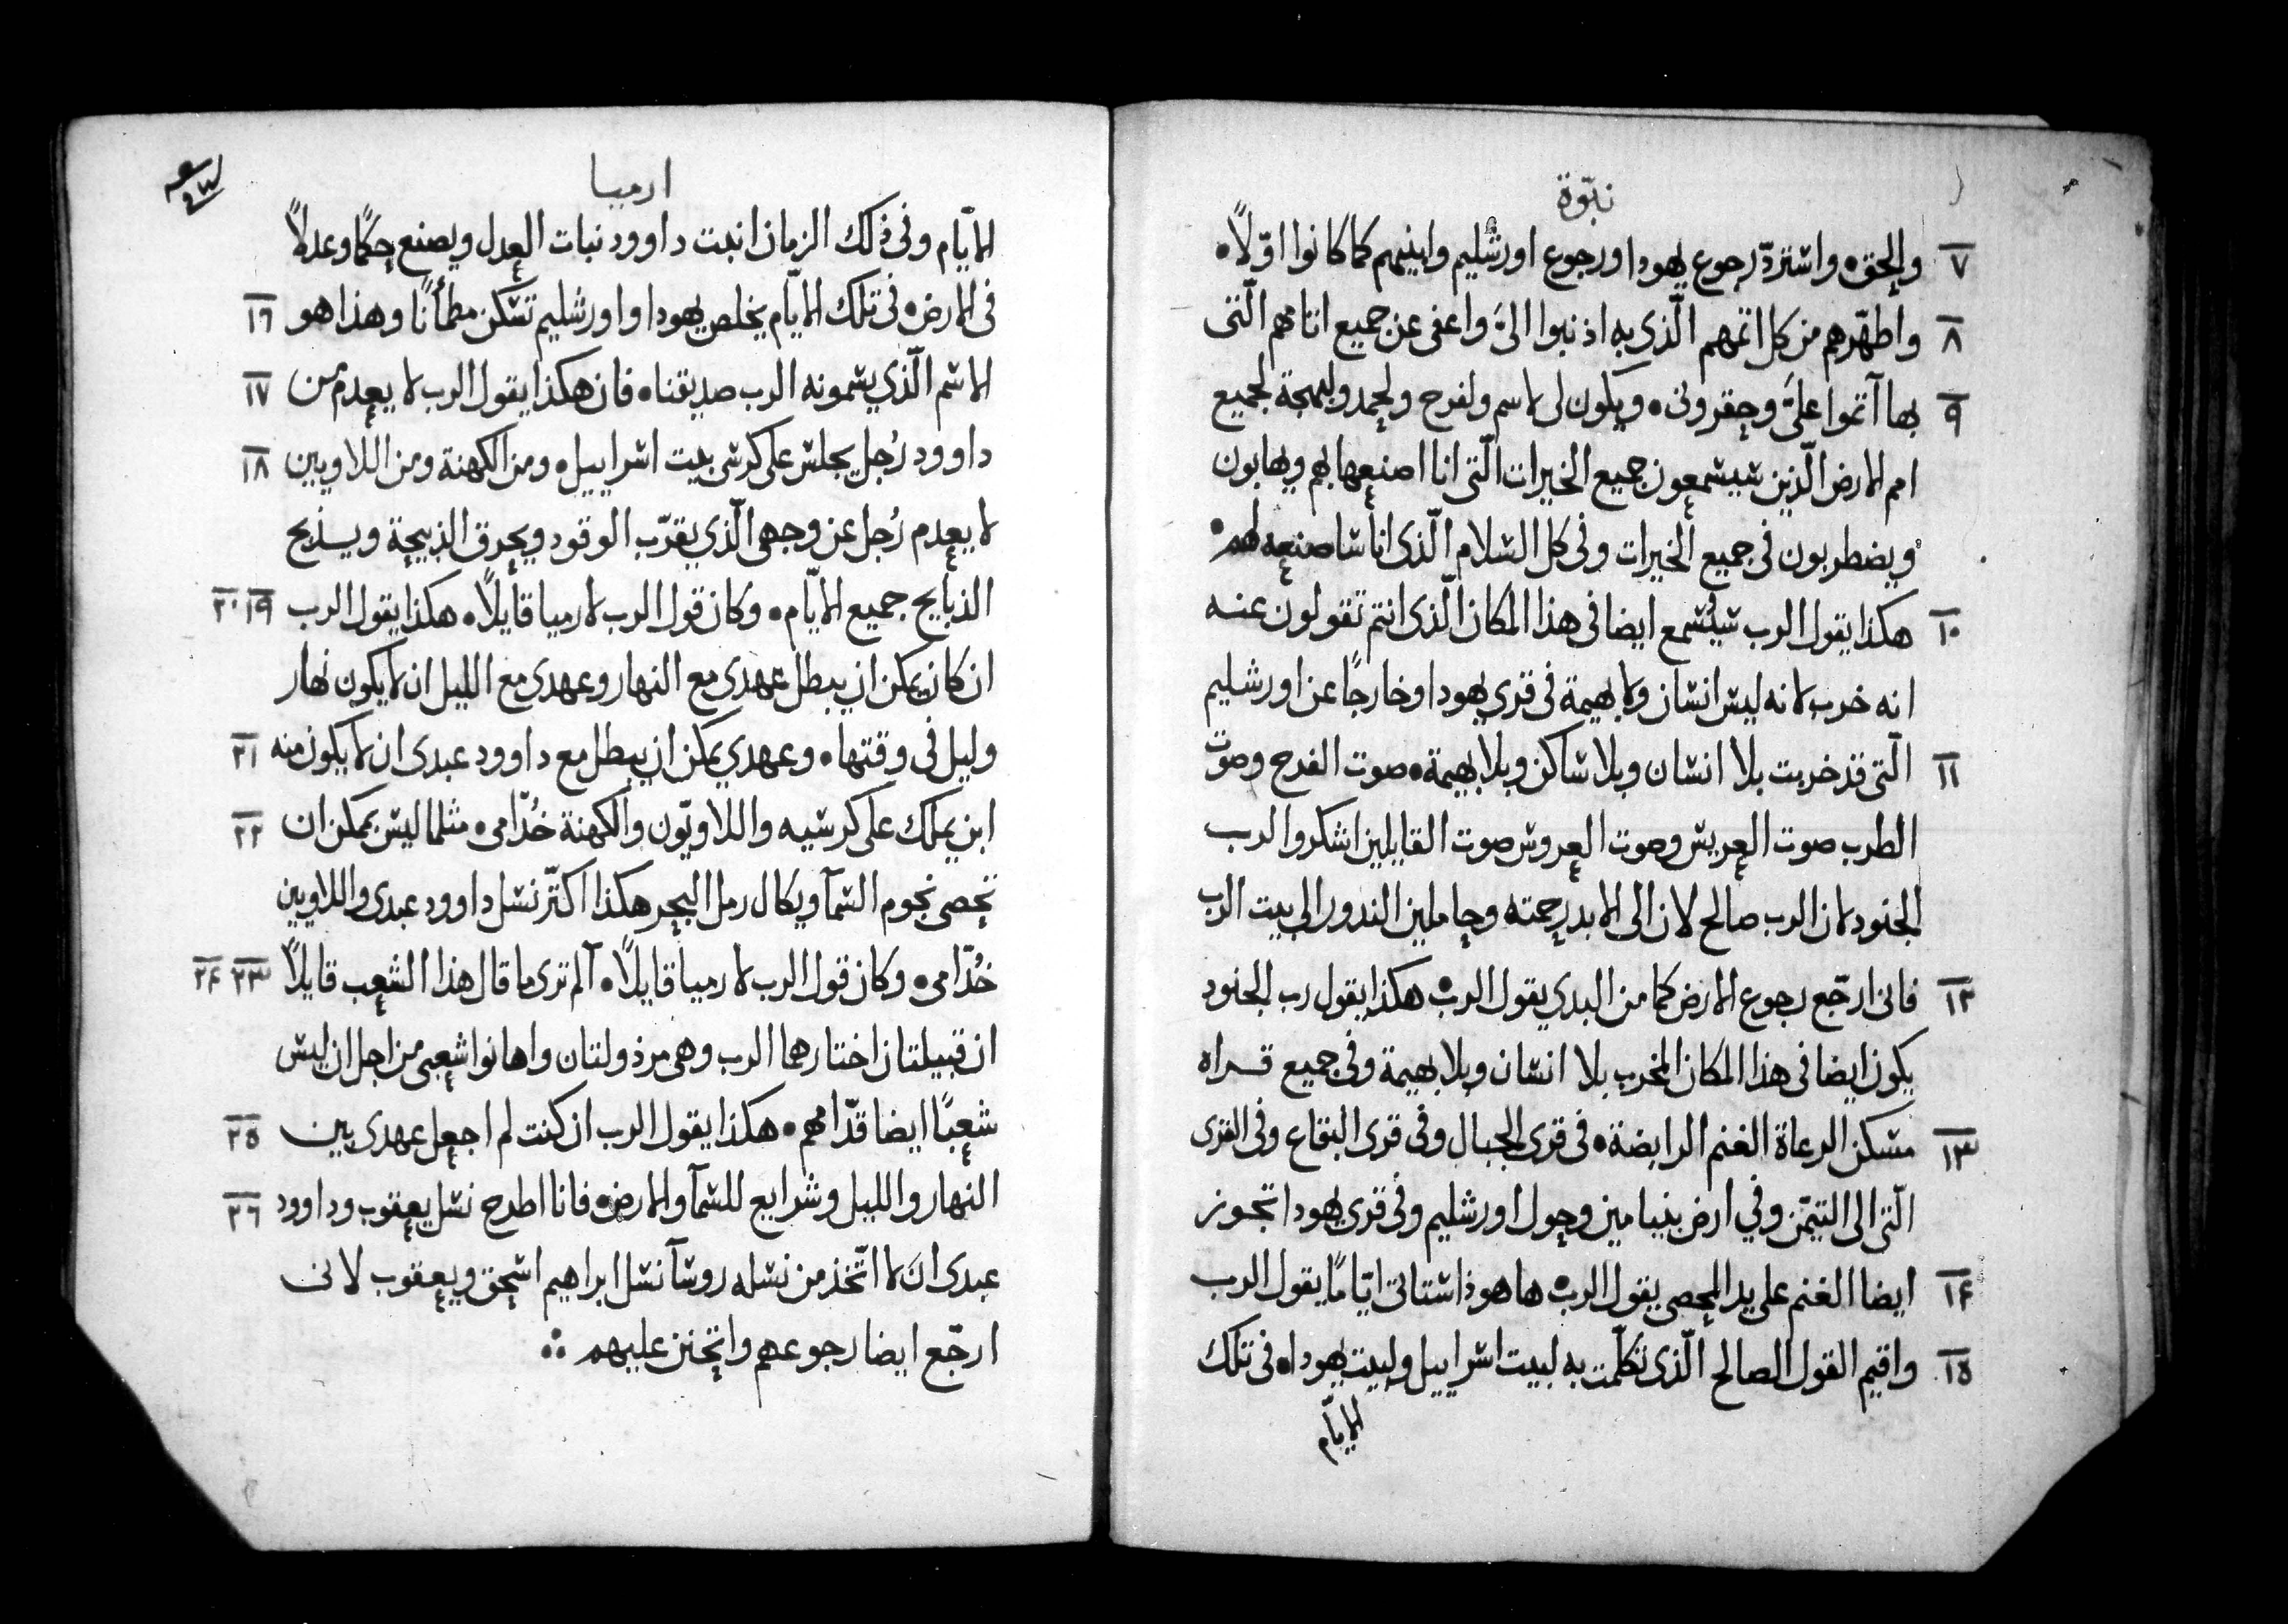 نبوّة
٧ والحق٥ واستردّ رجوع يهودا ورجوع اورشليم وابنيهم كما كانوا اوّلاً٥
٨ واطهّرهم من كل اثمهم الّذى به اذنبوا الىَّ واعفى عن جميع اثامهم الّتى
٩ بها آثموا علىَّ وحقرونى٥ ويكون لى لاسم ولفرح ولحمد ولبهجة لجميع
امم الارض الّذين سيسمعون جميع الخيرات الّتى انا اصنعها بهم ويهابون
ويضطربون فى جميع الخيرات وفى كل السلام الّذى انا ساصنعه لهم٥
١٠ هكذا يقول الرب سيُسمع ايضا فى هذا المكان الّذى انتم تقولون عنه
انه خرب لانه ليس انسان ولا بهيمة فى قرى يهودا وخارجًا عن اورشليم
١١ الّتى قد خربت بلا انسان وبلا ساكن وبلا بهيمة٥ صوت الفرح وصوت
الطرب صوت العريس وصوت العروس صوت القايلين اشكروا لرب
الجنود لان الرب صالح لان الى الابد رحمته وحاملين الندور الى بيت الرب
١٢ فانى ارجّع رجوع الارض كما من البدى يقول الرب٥ هكذا يقول رب الجنود
يكون ايضا فى هذا المكان المخرب بلا انسان وبلا بهيمة وفى جميع قراه
١٣ مسكن الرعاة الغنم الرابضة٥ فى قرى الجبال وفى قرى البقاع وفى القرى
الّتى الى التيمّن وفي ارض بنيامين وحول اورشليم وفى قرى يهودا تجوز
١٤ ايضا الغنم على يد المحصى يقول الرب٥ ها هوذا ستاتى ايّامًا يقول الرب
١٥ واقيم القول الصالح الّذى تكلّمت به لبيت اسراييل ولبيت يهودا٥ فى تلك
الايّام
ارميا
الايّام وفى ذلك الزمان انبت داوود نبات العدل ويصنع حكمًا وعدلاً
فى الارض٥ فى تلك الايّام يخلص يهودا واورشليم تسكن مطمأنًا وهذا هو ١٦
الاسم الّذي يسمونه الرب صديقنا٥ فان هكذا يقول الرب لا يعدم من ١٧
داوود رُجل يجلس على كرسى بيت اسراييل٥ ومن الكهنة ومن اللاويين ١٨
لا يعدم رُجل عن وجهى الّذي يقرّب الوقود ويحرق الذبيحة ويذبح
الذبايح جميع الايّام٥ وكان قول الرب لارميا قايلاً٥ هكذا يقول الرب ١٩ ٢٠
ان كان يمكن ان يبطل عهدى مع النهار وعهدى مع الليل ان لا يكون نهار
وليل فى وقتها٥ وعهدي يمكن ان يبطل مع داوود عبدى ان لا يكون منه ٢١
ابن يملك على كرسيه واللاويّون والكهنة خُدّامى٥ مثلما ليس يمكن ان ٢٢
تحصى نجوم السمآ ويكال رمل البحر هكذا اكثّر نسل داوود عبدى واللاويين
خُدّامى٥ وكان قول الرب لارميا قايلاً٥ آلم ترى ما قال هذا الشعب قايلاً ٢٣ ٢٤
ان قبيلتان اختارهما الرب وهى مرذولتان واهانوا شعبى من اجل ان ليس
شعبًا ايضا قدّامهم٥ هكذا يقول الرب ان كنت لم اجعل عهدى بين ٢٥
النهار والليل وشرايع للسمآ والارض٥ فانا اطرح نسل يعقوب وداوود ٢٦
عبدى ان لا اتّخذ من نسله روسآ نسل ابراهيم اسحق ويعقوب لانى
ارجّع ايضا رجوعهم واتحنن عليهم